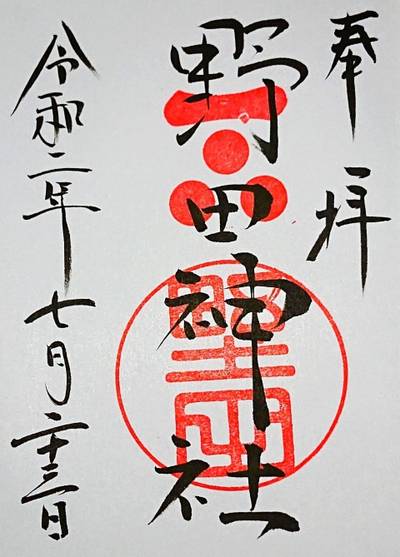 奉拝
野田神社
令和二年七月二十三日